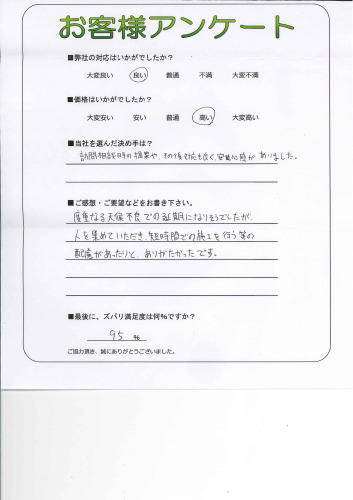 お客様アンケート
■弊社の対応はいかがでしたか?
大変良い 良い 普通 不満 大変不満
■価格はいかがでしたか?
大変安い 安い 普通 高い 大変高い
■当社を選んだ決め手は?
訪問相談時の提案や、その後対応も良く、安心感がありました。
■ご感想・ご要望などをお書き下さい。
度重なる天候不良での延期になりそうでしたが、
人を集めていただき、短時間での施工を行う等の
配慮があったりと、ありがたかったです。
■最後に、ズバリ満足度は何%ですか?
95 %
ご協力頂き、誠にありがとうございました。